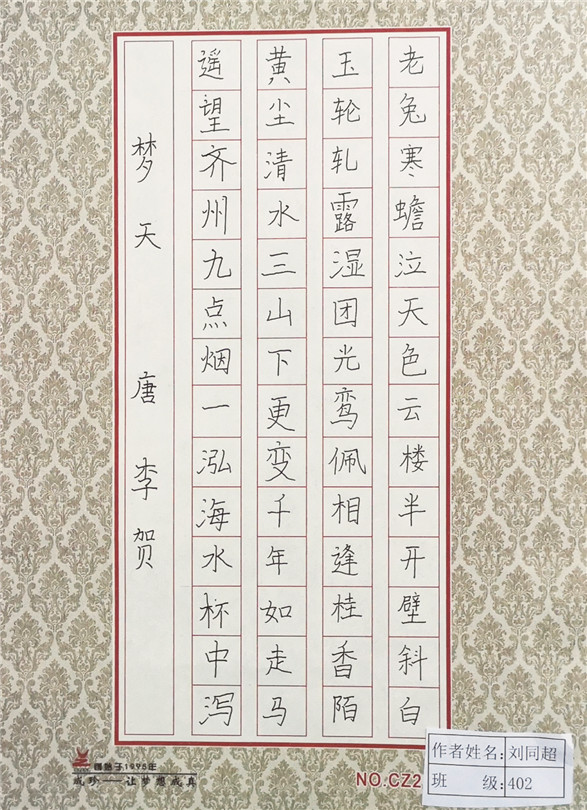 老兔寒蟾泣天色云楼半开壁斜白
玉轮轧露湿团光鸾佩相逢桂香陌
黄尘清水三山下更变千年如走马
遥望齐州九点烟一泓海水杯中泻
梦天 唐 李贺
缔基于1995年
成珍——让梦想成真
NO.CZ2
作者姓名:刘同超
班 级:402